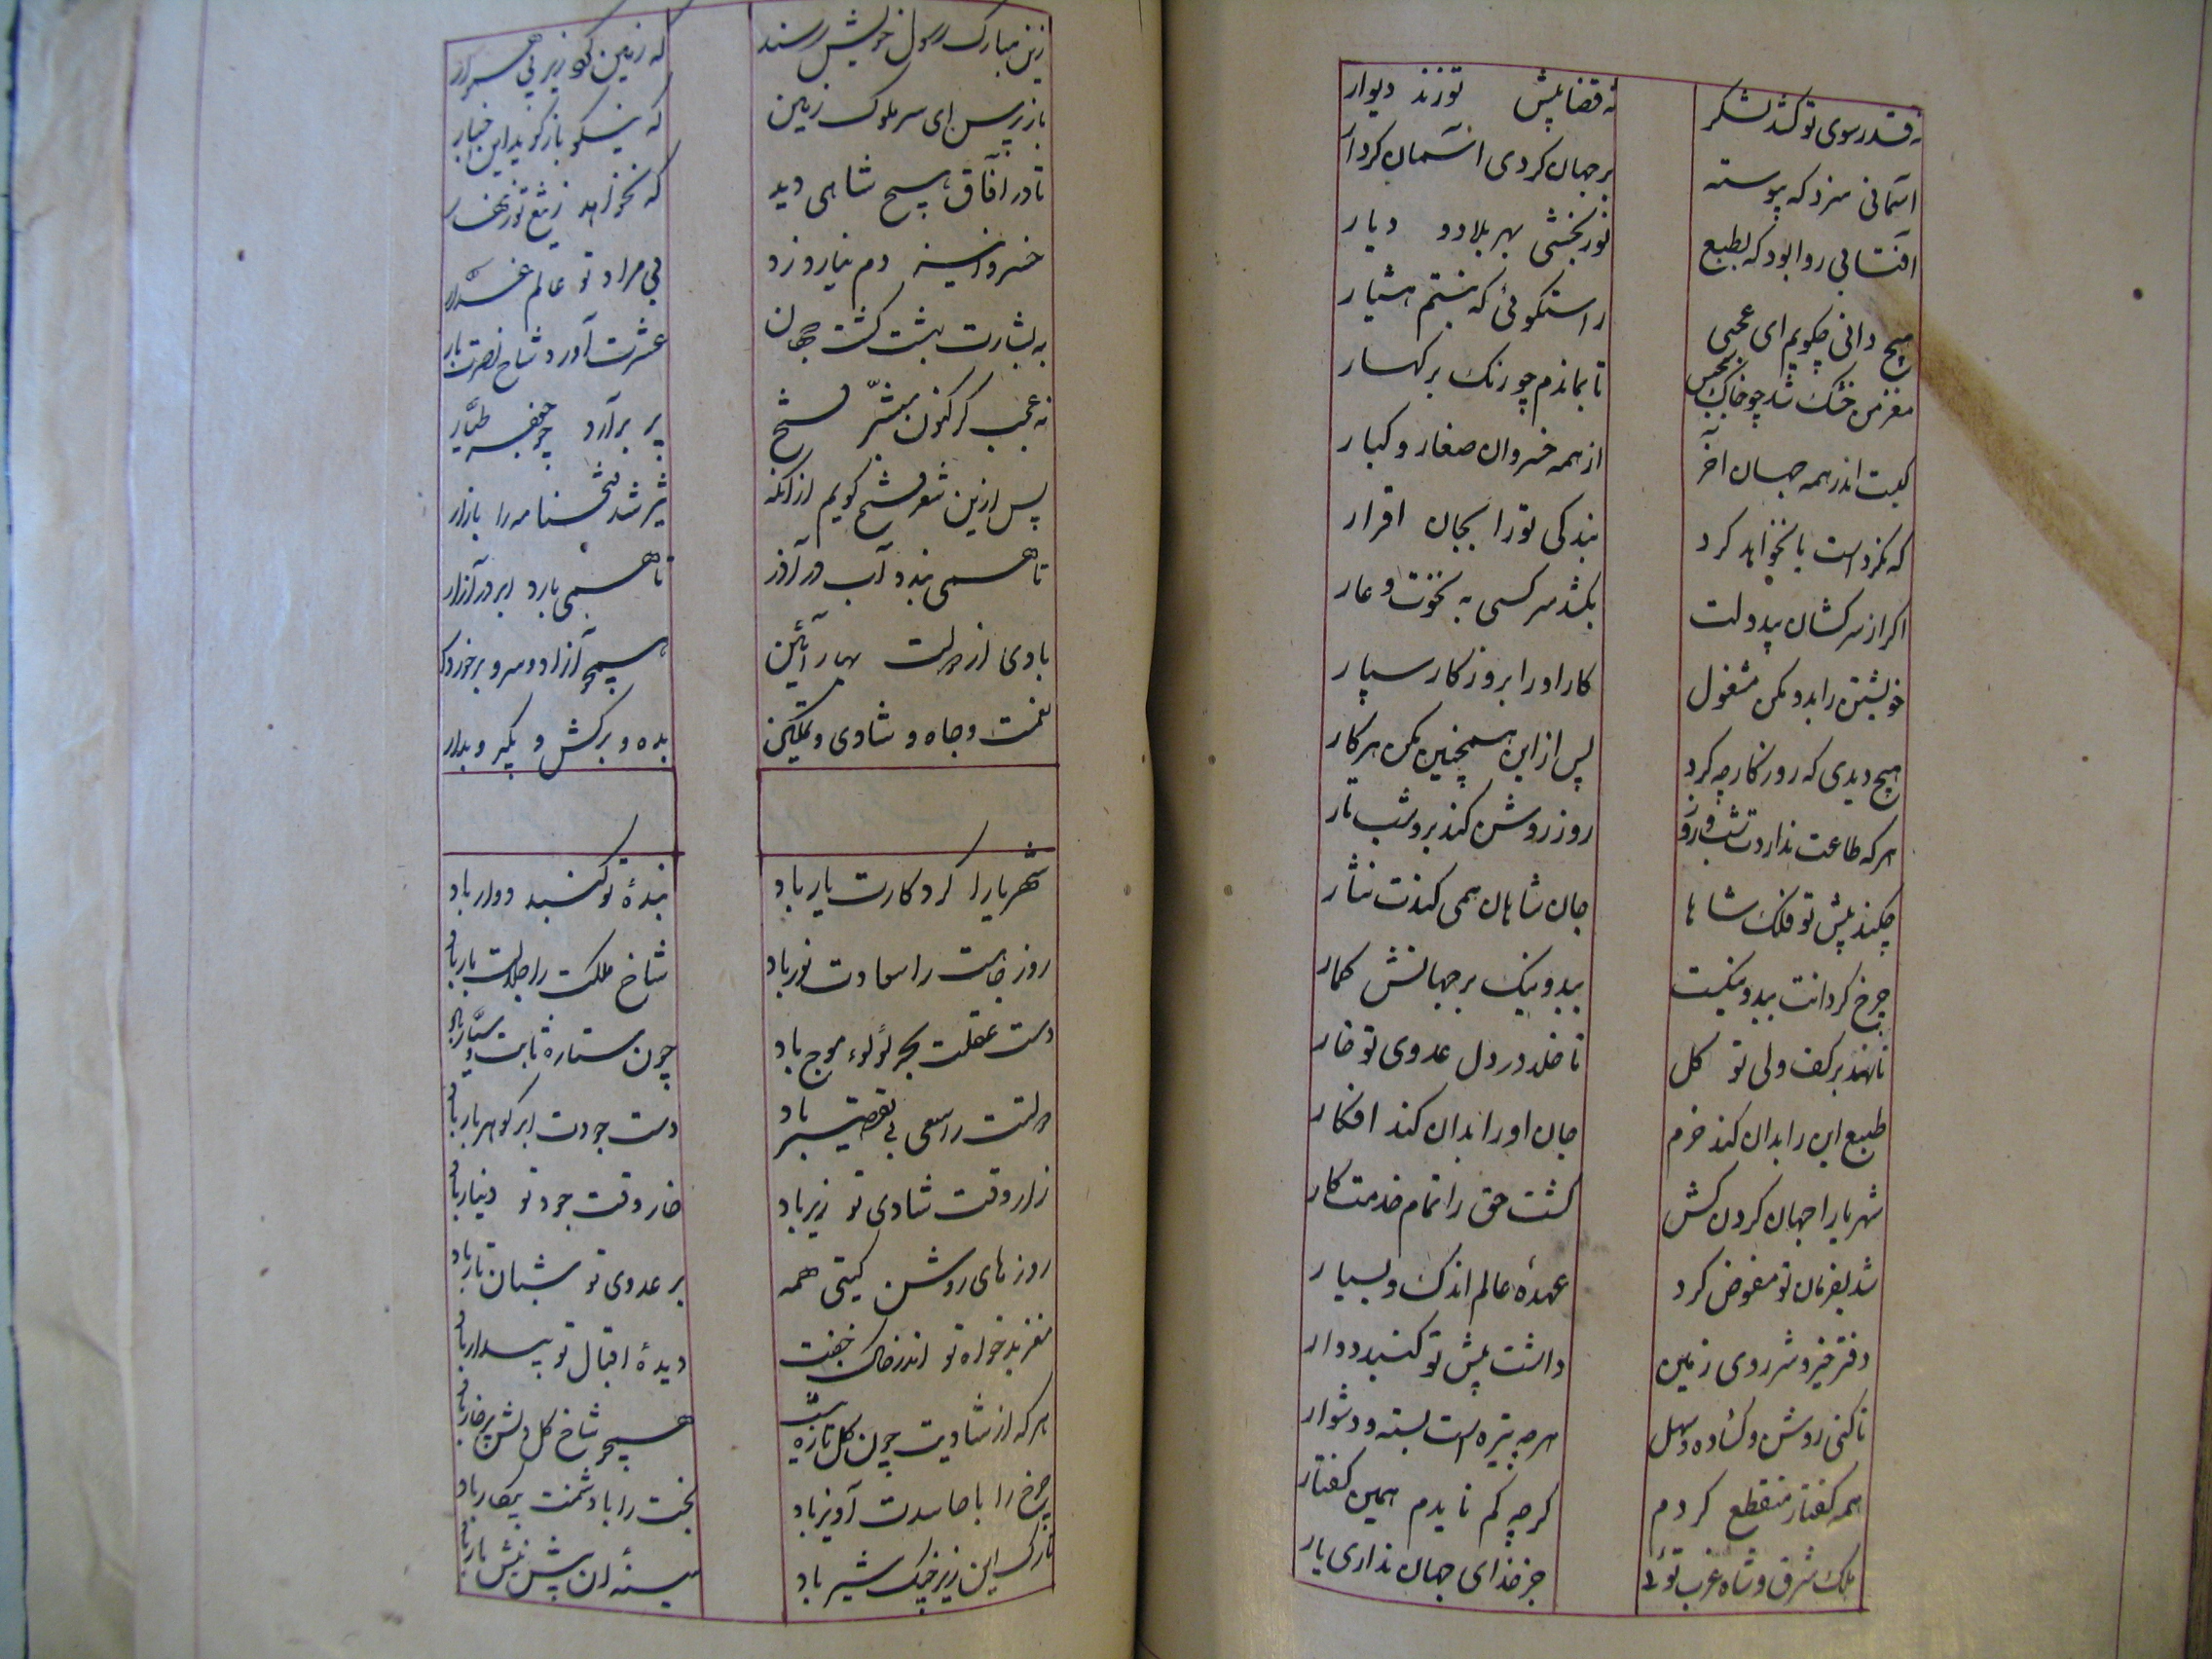 نه قدر سوی تو کشد لشکر
نه قضا پیش تو زند دیوار
آسمانی سزد که پیوسته
بر جهان کردی آسمان کردار
آفتابی روا بود که بطبع
نور بخشی بهر بلاد و دیار
هیچ دانی چکویم ای عجبی
راستکوئی که نیستم هشیار
مغز من خشک شد چو خاک
تا بماندم چو رنک بر کهسار
کیست اندر همه جهان آخر
از همه خسروان صغار و کبار
که نکرد است یا نخواهد کرد
بندکی تو را بجان اقرار
اکر از سرکشان بیدولت
بکشد سر کسی به نخوت و عار
خویشتن را بدو مکن مشغول
کار او را بروزکار سپار
هیچ دیدی که روزکار چه کرد
پس از این همچنین کن هر کار
هر که طاعت نداردت شب و روز
روز روشن کند برو شب تار
چکند پیش تو فلک شاها
جان شاهان همی کندت نثار
چرخ کردانت بید و نیکیت
بید و نیک بر جهانش کمار
تا نهند بر کف ولی تو کل
تا خلد در دل عدوی تو خار
طبع این را بدان کند خرم
جان او را بدان کند افکار
شهریارا جهان کردن کش
کشت حق را تمام خدمتکار
شد بفرمان تو مفوض کرد
عهدهٔ عالم اندک و بسیار
دفتر خیر و شر روی زمین
داشت پیش تو کنبد دوار
تا کنی روشن و کشاده و سهل
هر چه تیره است بسته و دشوار
همه کفتار منقطع کردم
کرچه کم نایدم همین کفتار
ملک شرق و شاه غرب توئی
جز خدای جهان نداری یار
زین مبارک رسول خویش رسند
که زمین کو زیر پی هموار
باز پرس ای سر ملوک زمین
که نیکو باز کوید این اخبار
تا در آفاق هیچ شاهی دید
که نخواهد ز تیغ تو زنهار
خسروانه دم نیارد زد
بی مراد تو عالم غدّار
به بشارت بهشت کشت جهان
عشرت آورد شاخ نصرت بار
نه عجب کر کنون مبشّر فتح
پر برآرد چو جعفر طیّار
پس ازین شعر فتح کویم از آنکه
تیز شد فتحنامه را بازار
تا همی بندد آب در آذر
تا همی بارد ابر در آزار
بادی از دولت بهار آئین
هیچ آزاده سرو برخوردار
نعمت و جاه و شادی و تمکین
بده و برکش و بگیر و بدار
شهریارا کردکارت یار باد
بندهٔ تو کنبد دوار باد
روز جاهت را سعادت نور باد
شاخ ملکت را جلالت بار باد
دست عقلت بحر لؤلؤ موج باد
چون ستاره ثابت و سیّار باد
دولتت را سعی بی تقصیر باد
دست جودت ابر کوهربار باد
زار وقت شادی تو زیر باد
خار وقت جود تو دینار باد
روزهای روشن کیتی همه
بر عدوی تو شبان تار باد
مغز بدخواه تو اندر خاک خفت
دیدهٔ اقبال تو بیدار باد
هر که از شادیت چون کل تازه نیست
همچو شاخ کل دلش پرخار باد
چرخ را با حاسدت آویز باد
بخت را با دشمنت پیکار باد
تارک این زیر چنک شیر باد
سینهٔ آن پیش نیش مار باد